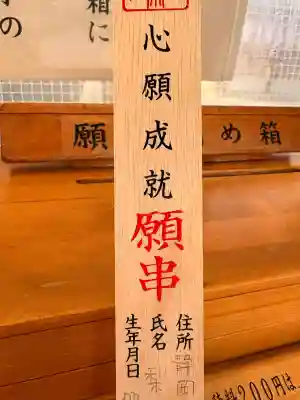 心願成就
願串
住所 静岡
氏名
生年月日
箱に
の
願
め箱
料200円は、